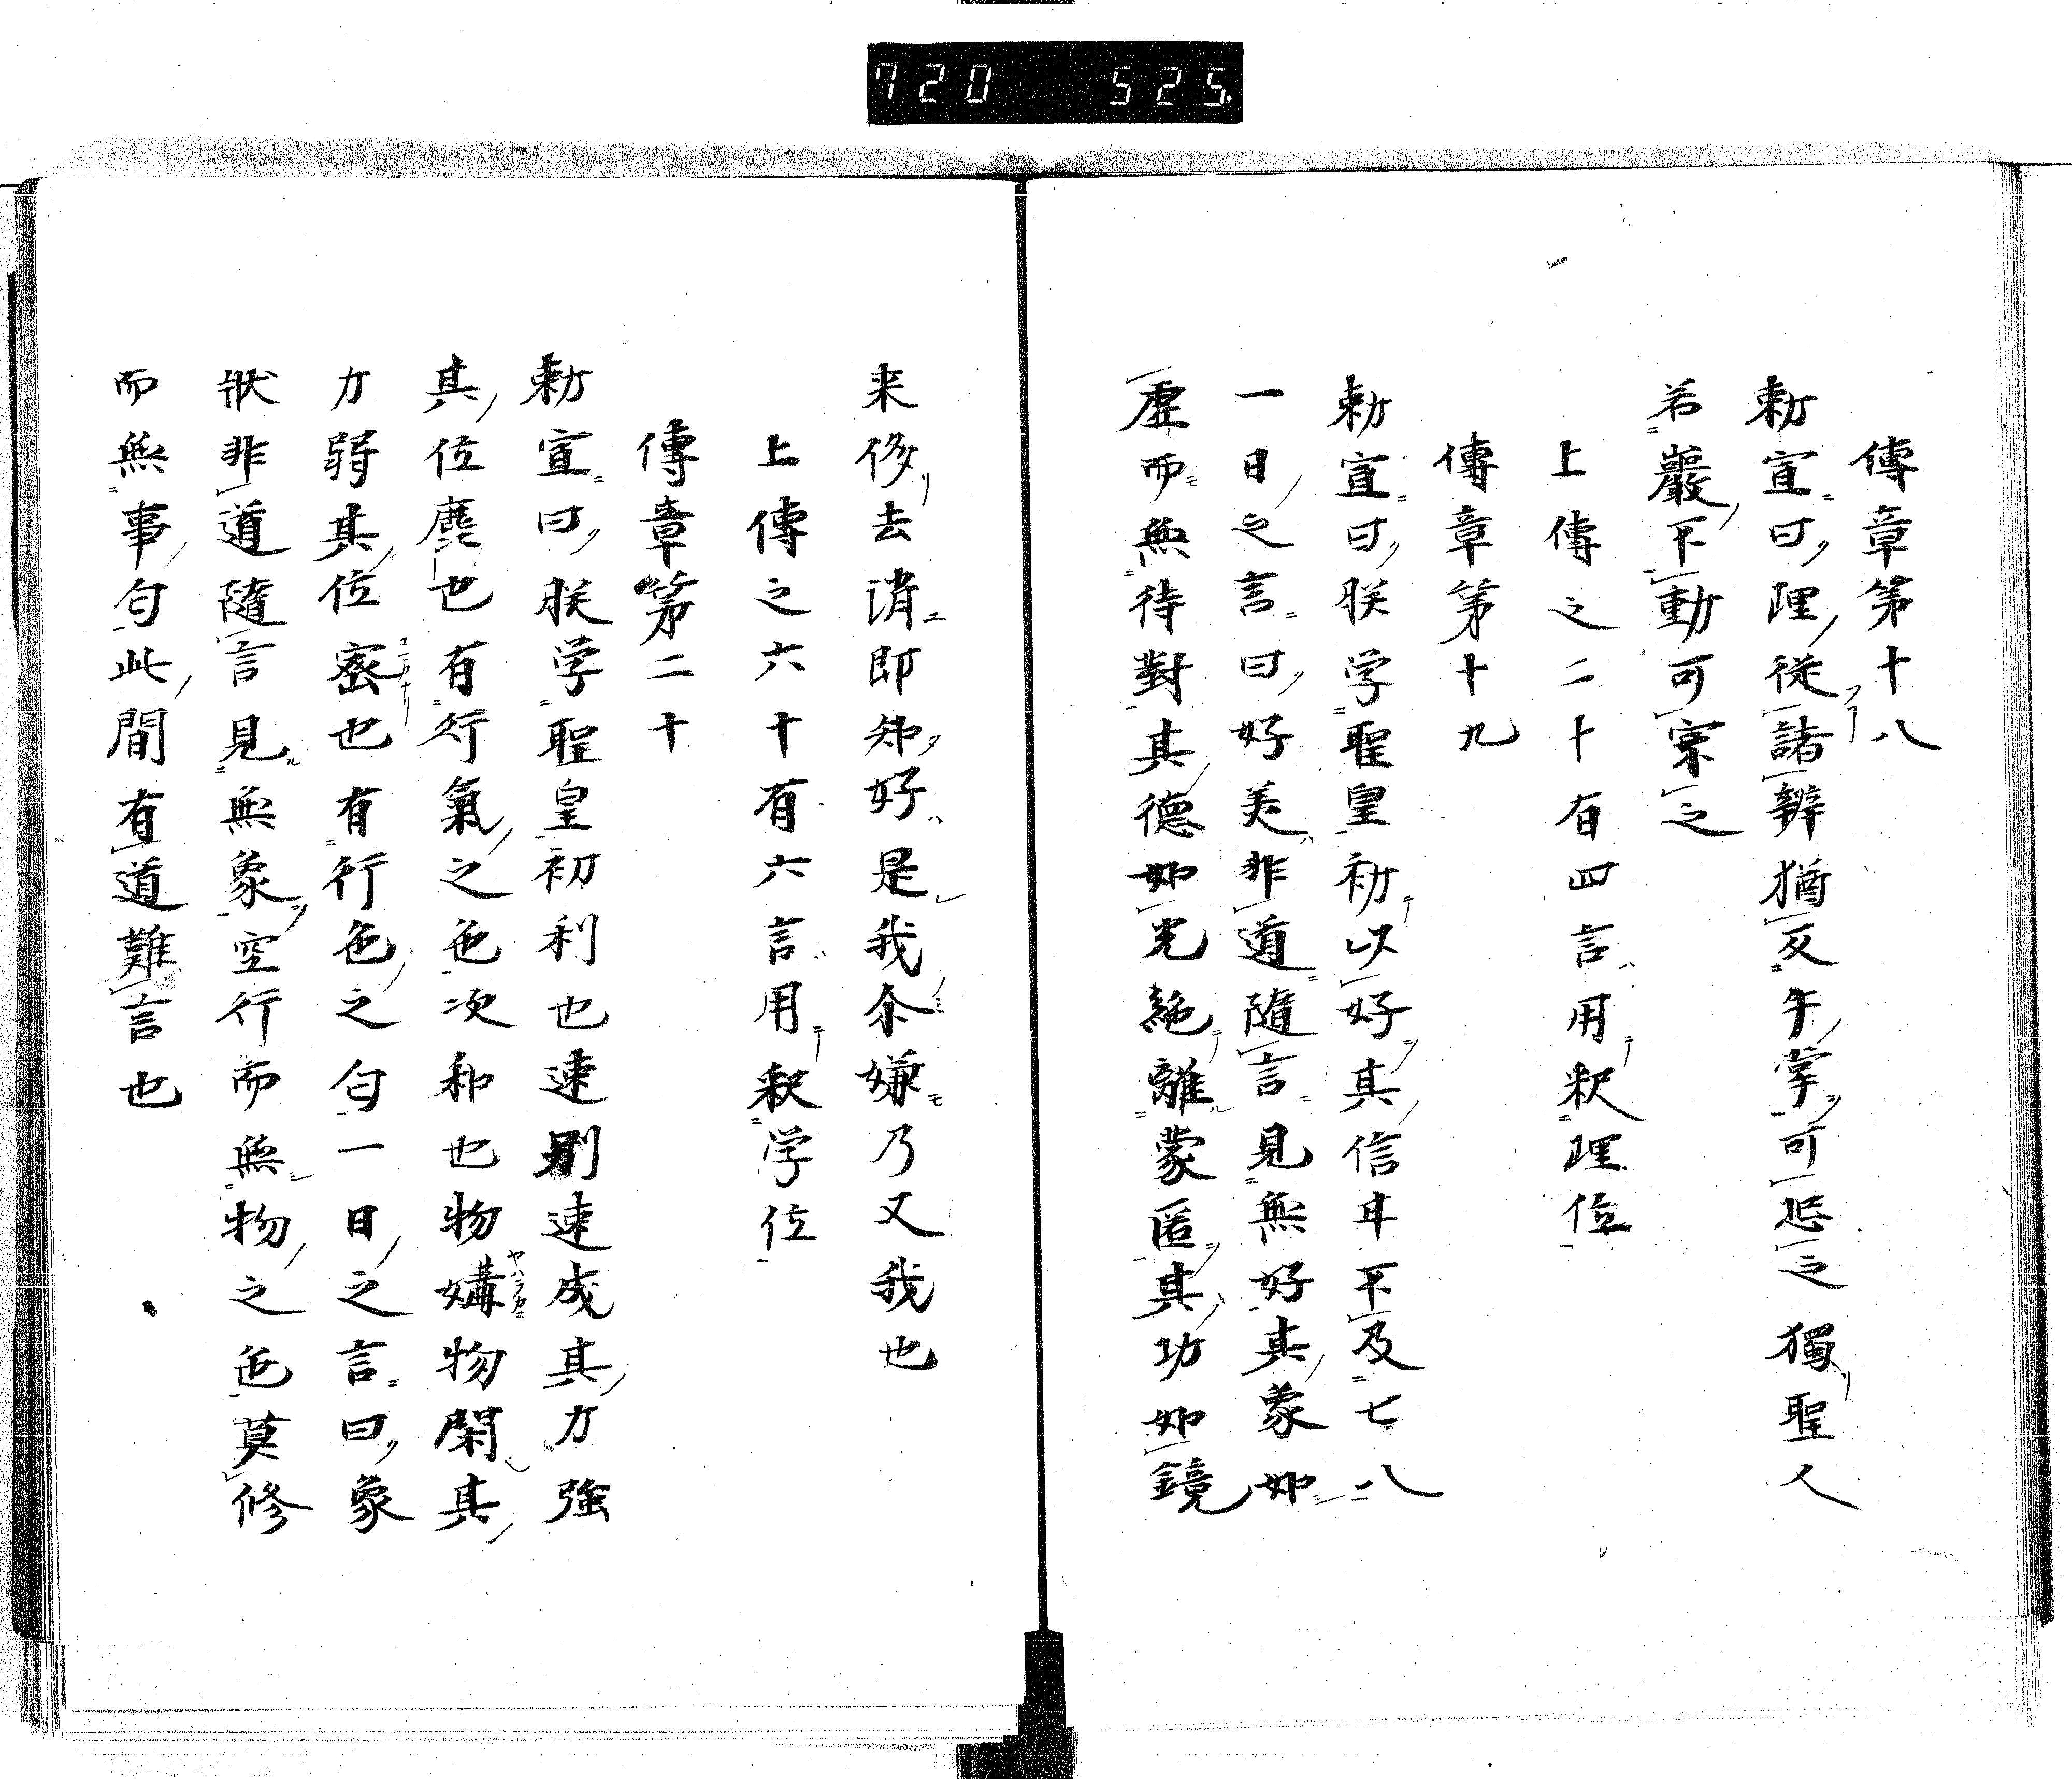 720 525.
傳章第十八
勅宣曰理従諸辨猶反手掌可㤀之獨聖人
若巖不動可寀之
上傳之二十有四言用釈理位
傳章第十九
勅宣曰朕学聖皇初以好其信耳不及七八
一日之言曰好美非道隨言見無好其蒙如
虚而無待對其德如光絶離蒙匿其功如鏡
来侈去消即知好是我尒嫌乃又我也
上傳之六十有六言用釈学位
傳章第二十
勅宣曰朕学聖皇初利也速別速成其力強
其位麁也有行氣之色次和也物媾物閑其
力弱其位密也有行色之匂一日之言曰象
狀非道隨言見無象空行而無物之色莫修
而無事匂此間有道難言也